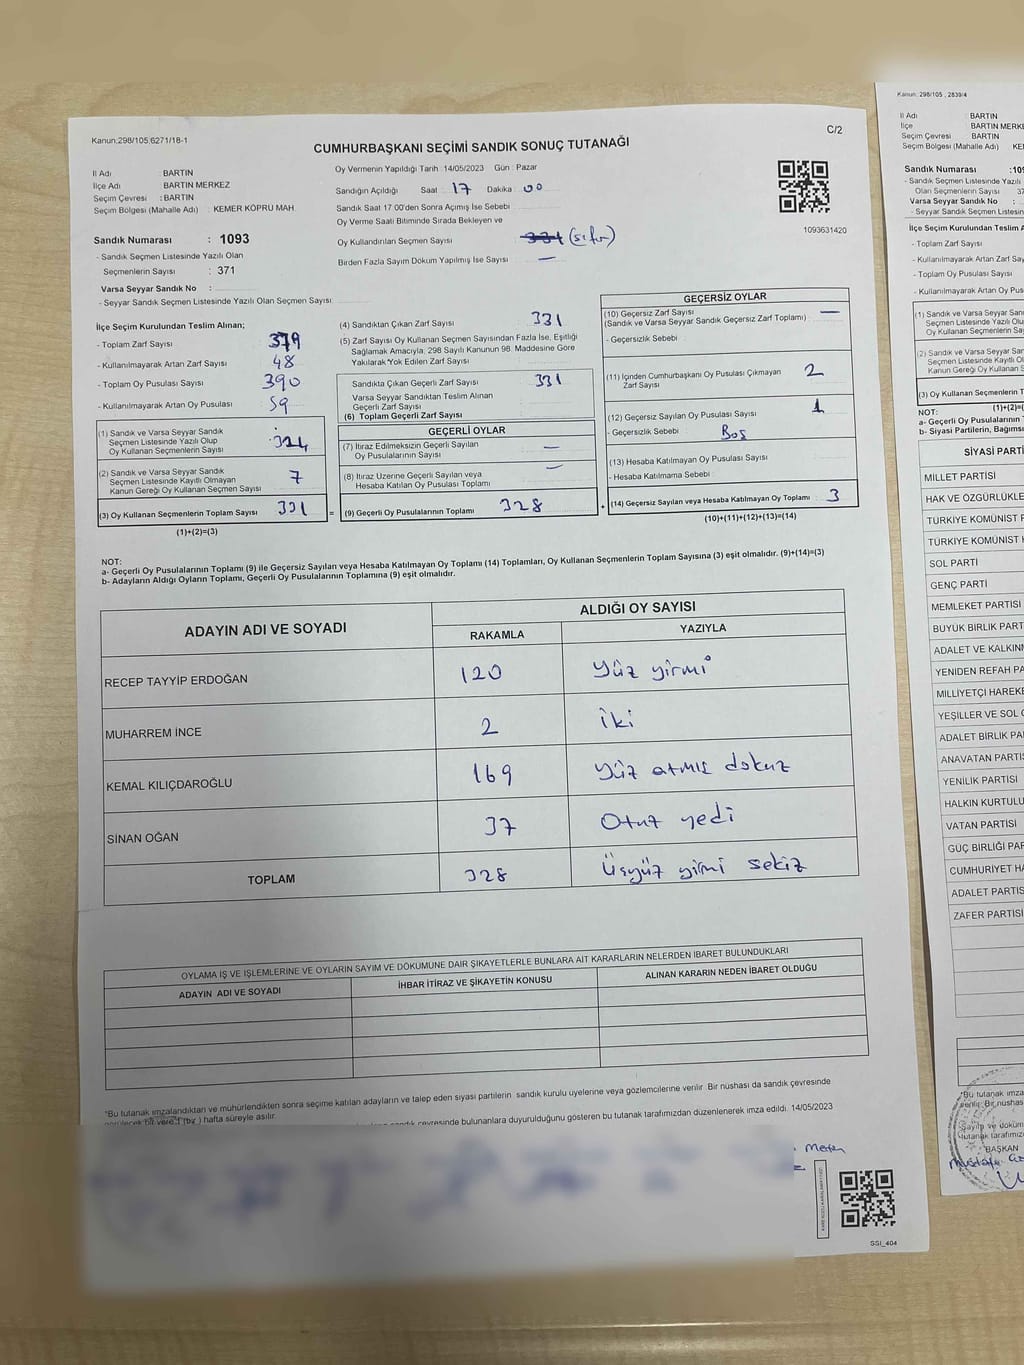 Kanun:298/105,6271/18-1
C/2
CUMHURBAŞKANI SEÇİMİ SANDIK SONUÇ TUTANAĞI
İl Adı : BARTIN
İlçe Adı BARTIN MERKEZ
Seçim Çevresi : BARTIN
Seçim Bölgesi (Mahalle Adı) : KEMER KÖPRÜ MAH.
Sandık Numarası : 1093
- Sandık Seçmen Listesinde Yazılı Olan
Seçmenlerin Sayısı : 371
Varsa Seyyar Sandık No :
- Seyyar Sandık Seçmen Listesinde Yazılı Olan Seçmen Sayısı
Oy Vermenin Yapıldığı Tarih :14/05/2023 Gün : Pazar
Sandığın Açıldığı Saat : 17 Dakika : 00
Sandık Saat 17.00'den Sonra Açılmış İse Sebebi
Oy Verme Saati Bitiminde Sırada Bekleyen ve
Oy Kullandırılan Seçmen Sayısı : 331 (sıfır)
Birden Fazla Sayım Döküm Yapılmış İse Sayısı : —
1093631420
İlçe Seçim Kurulundan Teslim Alınan;
- Toplam Zarf Sayısı : 379
- Kullanılmayarak Artan Zarf Sayısı : 48
- Toplam Oy Pusulası Sayısı : 390
- Kullanılmayarak Artan Oy Pusulası : 59
(1) Sandık ve Varsa Seyyar Sandık
Seçmen Listesinde Yazılı Olup
Oy Kullanan Seçmenlerin Sayısı : 324
(2) Sandık ve Varsa Seyyar Sandık
Seçmen Listesinde Kayıtlı Olmayan
Kanun Gereği Oy Kullanan Seçmen Sayısı : 7
(3) Oy Kullanan Seçmenlerin Toplam Sayısı : 331
(1)+(2)=(3)
(4) Sandıktan Çıkan Zarf Sayısı : 331
(5) Zarf Sayısı Oy Kullanan Seçmen Sayısından Fazla İse, Eşitliği
Sağlamak Amacıyla; 298 Sayılı Kanunun 98. Maddesine Göre
Yakılarak Yok Edilen Zarf Sayısı
Sandıkta Çıkan Geçerli Zarf Sayısı : 331
Varsa Seyyar Sandıktan Teslim Alınan
Geçerli Zarf Sayısı
(6) Toplam Geçerli Zarf Sayısı
GEÇERLİ OYLAR
(7) İtiraz Edilmeksizin Geçerli Sayılan
Oy Pusulalarının Sayısı : —
(8) İtiraz Üzerine Geçerli Sayılan veya
Hesaba Katılan Oy Pusulası Toplamı : —
= (9) Geçerli Oy Pusulalarının Toplamı : 328 +
GEÇERSİZ OYLAR
(10) Geçersiz Zarf Sayısı
(Sandık ve Varsa Seyyar Sandık Geçersiz Zarf Toplamı) : —
- Geçersizlik Sebebi :
(11) İçinden Cumhurbaşkanı Oy Pusulası Çıkmayan
Zarf Sayısı : 2
(12) Geçersiz Sayılan Oy Pusulası Sayısı : 1
- Geçersizlik Sebebi : Boş
(13) Hesaba Katılmayan Oy Pusulası Sayısı :
- Hesaba Katılmama Sebebi :
(14) Geçersiz Sayılan veya Hesaba Katılmayan Oy Toplamı : 3
(10)+(11)+(12)+(13)=(14)
NOT:
a- Geçerli Oy Pusulalarının Toplamı (9) ile Geçersiz Sayılan veya Hesaba Katılmayan Oy Toplamı (14) Toplamları, Oy Kullanan Seçmenlerin Toplam Sayısına (3) eşit olmalıdır. (9)+(14)=(3)
b- Adayların Aldığı Oyların Toplamı, Geçerli Oy Pusulalarının Toplamına (9) eşit olmalıdır.
ADAYIN ADI VE SOYADI ALDIĞI OY SAYISI
RAKAMLA YAZIYLA
RECEP TAYYİP ERDOĞAN 120 yüz yirmi
MUHARREM İNCE 2 iki
KEMAL KILIÇDAROĞLU 169 yüz atmış dokuz
SİNAN OĞAN 37 Otuz yedi
TOPLAM 328 Üçyüz yirmi sekiz
OYLAMA İŞ VE İŞLEMLERİNE VE OYLARIN SAYIM VE DÖKÜMÜNE DAİR ŞİKAYETLERLE BUNLARA AİT KARARLARIN NELERDEN İBARET BULUNDUKLARI
ADAYIN ADI VE SOYADI İHBAR İTİRAZ VE ŞİKAYETİN KONUSU ALINAN KARARIN NEDEN İBARET OLDUĞU
*Bu tutanak imzalandıktan ve mühürlendikten sonra seçime katılan adayların ve talep eden siyasi partilerin sandık kurulu üyelerine veya gözlemcilerine verilir. Bir nüshası da sandık çevresinde
görülecek bir yere 1 (bir) hafta süreyle asılır.
sandık çevresinde bulunanlara duyurulduğunu gösteren bu tutanak tarafımızdan düzenlenerek imza edildi. 14/05/2023
SSI_404
Kanun: 298/105 , 2839/4
İl Adı : BARTIN
İlçe : BARTIN MERKE
Seçim Çevresi : BARTIN
Seçim Bölgesi (Mahalle Adı) : KE
Sandık Numarası :109
- Sandık Seçmen Listesinde Yazılı
Olan Seçmenlerin Sayısı : 37
Varsa Seyyar Sandık No :
- Seyyar Sandık Seçmen Listesinde Yazıl
İlçe Seçim Kurulundan Teslim A
- Toplam Zarf Sayısı
- Kullanılmayarak Artan Zarf Say
- Toplam Oy Pusulası Sayısı
- Kullanılmayarak Artan Oy Pus
(1) Sandık ve Varsa Seyyar San
Seçmen Listesinde Yazılı Olu
Oy Kullanan Seçmenlerin Sa
(2) Sandık ve Varsa Seyyar Sand
Seçmen Listesinde Kayıtlı O
Kanun Gereği Oy Kullanan S
(3) Oy Kullanan Seçmenlerin T
(1)+(2)=(
NOT:
a- Geçerli Oy Pusulalarının
b- Siyasi Partilerin, Bağıms
SİYASİ PARTİ
MİLLET PARTİSİ
HAK VE ÖZGÜRLÜKLE
TÜRKİYE KOMÜNİST P
TÜRKİYE KOMÜNİST H
SOL PARTİ
GENÇ PARTİ
MEMLEKET PARTİSİ
BÜYÜK BİRLİK PART
ADALET VE KALKINM
YENİDEN REFAH PA
MİLLİYETÇİ HAREKE
YEŞİLLER VE SOL G
ADALET BİRLİK PA
ANAVATAN PARTİS
YENİLİK PARTİSİ
HALKIN KURTULU
VATAN PARTİSİ
GÜÇ BİRLİĞİ PAR
CUMHURİYET HA
ADALET PARTİS
ZAFER PARTİSİ
*Bu tutanak imza
BAŞKAN